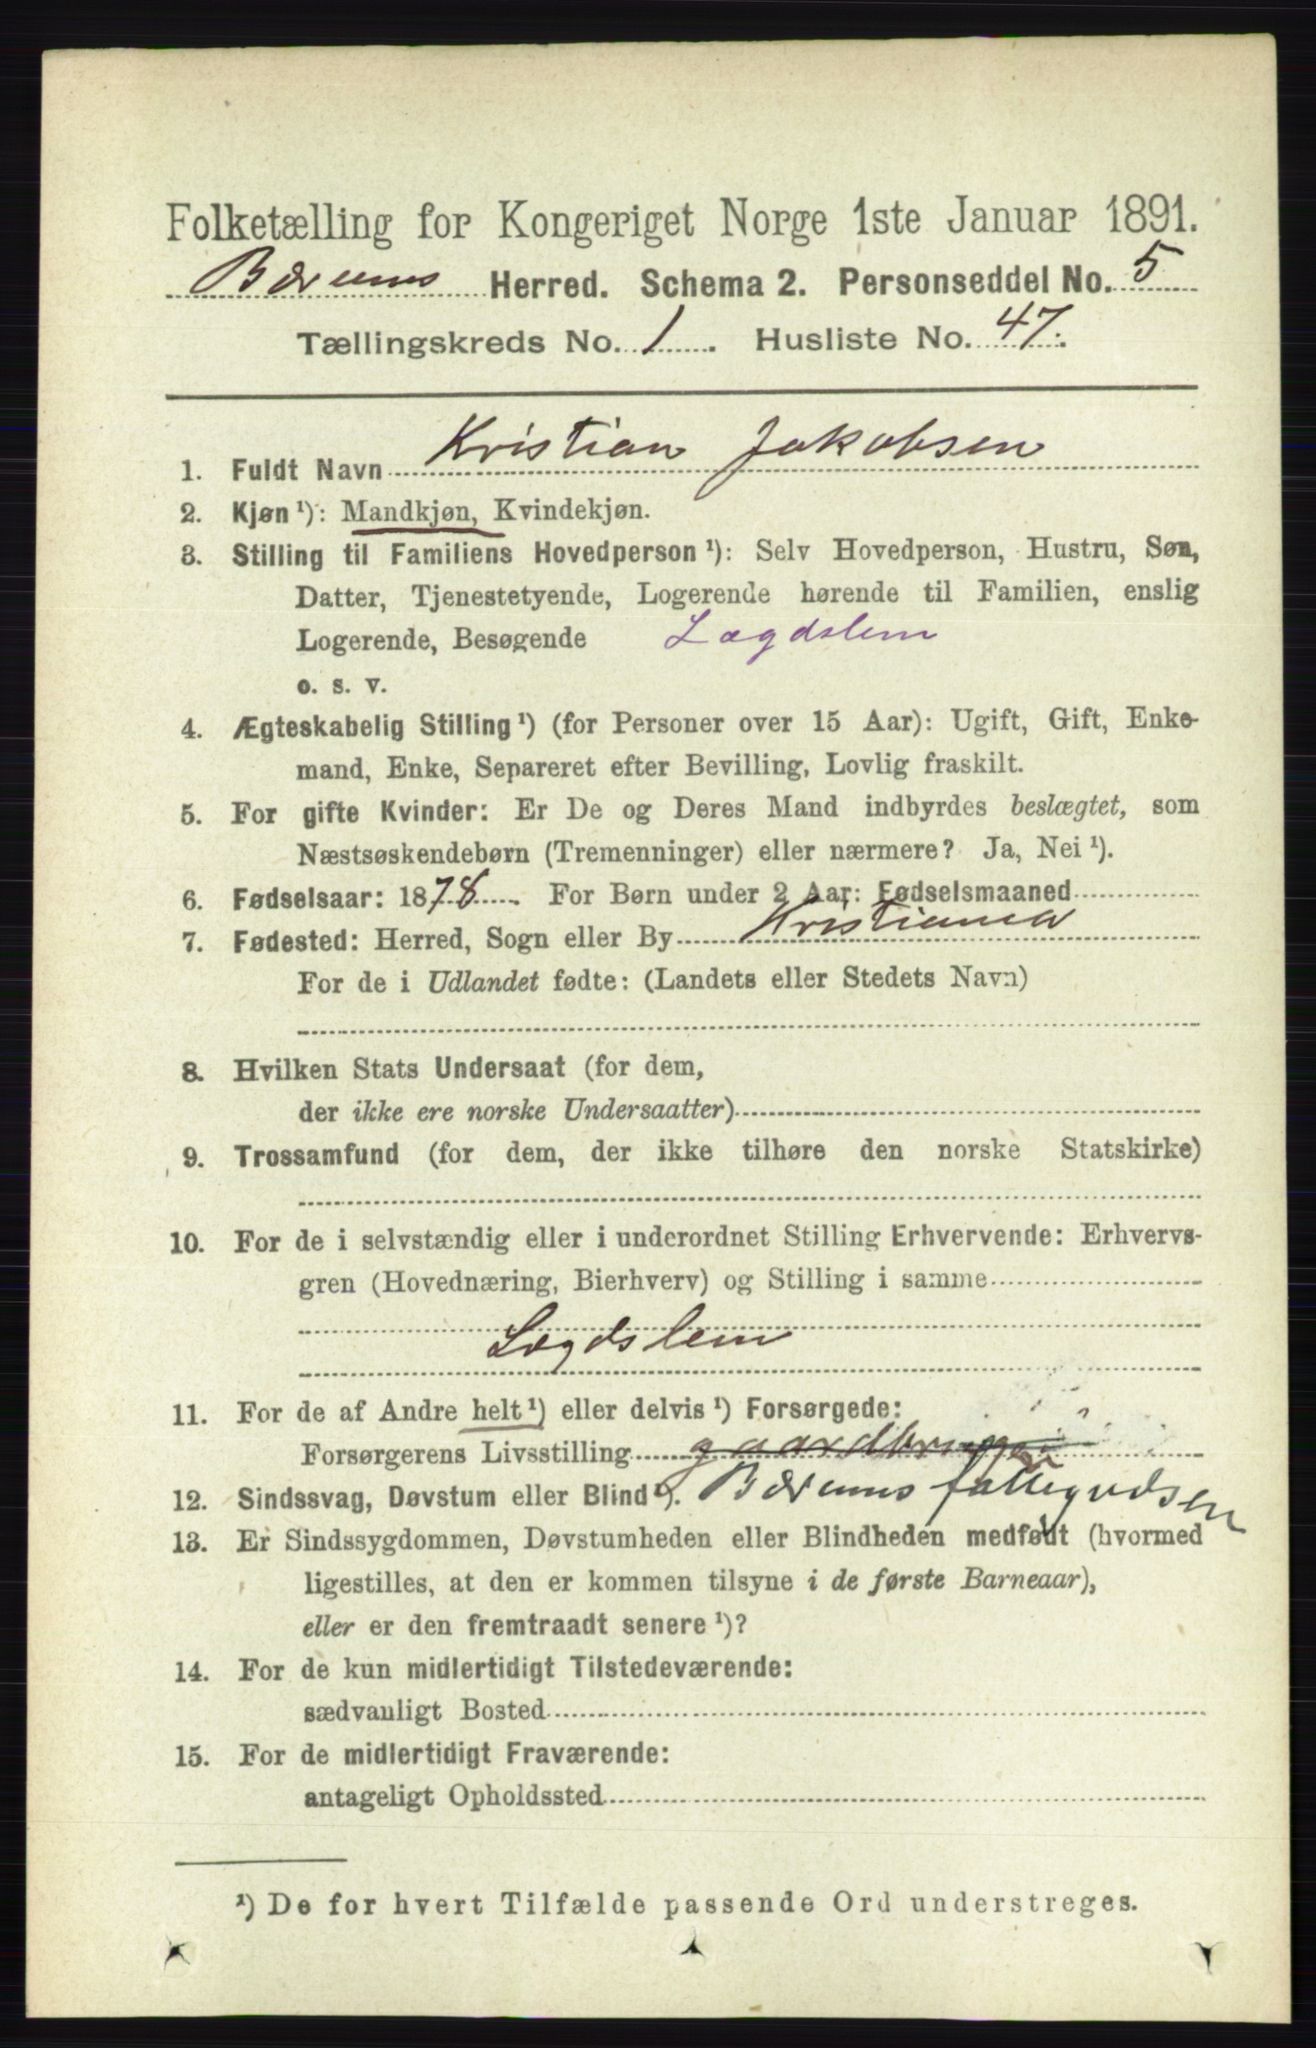 Folketælling for Kongeriget Norge 1ste Januar 1891.
Bærums Herred. Schema 2. Personseddel No. 5
Tællingskreds No. 1. Husliste No. 47.
1. Fuldt Navn Kristian Jakobsen
2. Kjøn ¹): Mandkjøn, Kvindekjøn.
3. Stilling til Familiens Hovedperson ¹): Selv Hovedperson, Hustru, Søn,
Datter, Tjenestetyende, Logerende hørende til Familien, enslig
Logerende, Besøgende Lægdslem
o. s. v.
4. Ægteskabelig Stilling ¹) (for Personer over 15 Aar): Ugift, Gift, Enke-
mand, Enke, Separeret efter Bevilling, Lovlig fraskilt.
5. For gifte Kvinder: Er De og Deres Mand indbyrdes beslægtet, som
Næstsøskendebørn (Tremenninger) eller nærmere? Ja, Nei ¹).
6. Fødselsaar: 1878. For Børn under 2 Aar: Fødselsmaaned
7. Fødested: Herred, Sogn eller By Kristiania
For de i Udlandet fødte: (Landets eller Stedets Navn)
8. Hvilken Stats Undersaat (for dem,
der ikke ere norske Undersaatter)
9. Trossamfund (for dem, der ikke tilhøre den norske Statskirke)
10. For de i selvstændig eller i underordnet Stilling Erhvervende: Erhvervs-
gren (Hovednæring, Bierhverv) og Stilling i samme
Lægdslem
11. For de af Andre helt ¹) eller delvis ¹) Forsørgede:
Forsørgerens Livsstilling gaardbruger
12. Sindssvag, Døvstum eller Blind ¹). Bærums fattigvæsen
13. Er Sindssygdommen, Døvstumheden eller Blindheden medfødt (hvormed
ligestilles, at den er kommen tilsyne i de første Barneaar),
eller er den fremtraadt senere ¹)?
14. For de kun midlertidigt Tilstedeværende:
sædvanligt Bosted
15. For de midlertidigt Fraværende:
antageligt Opholdssted
¹) De for hvert Tilfælde passende Ord understreges.